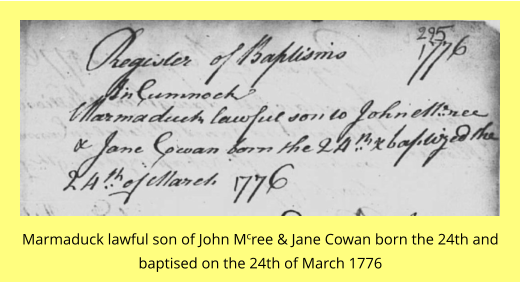 295
Register of Baptisms 1776
In Cumnock
Marmaduck lawful son to John Mcree
& Jane Cowan born the 24th & baptized the
24th of March 1776
Marmaduck lawful son of John Mcree & Jane Cowan born the 24th and
baptised on the 24th of March 1776